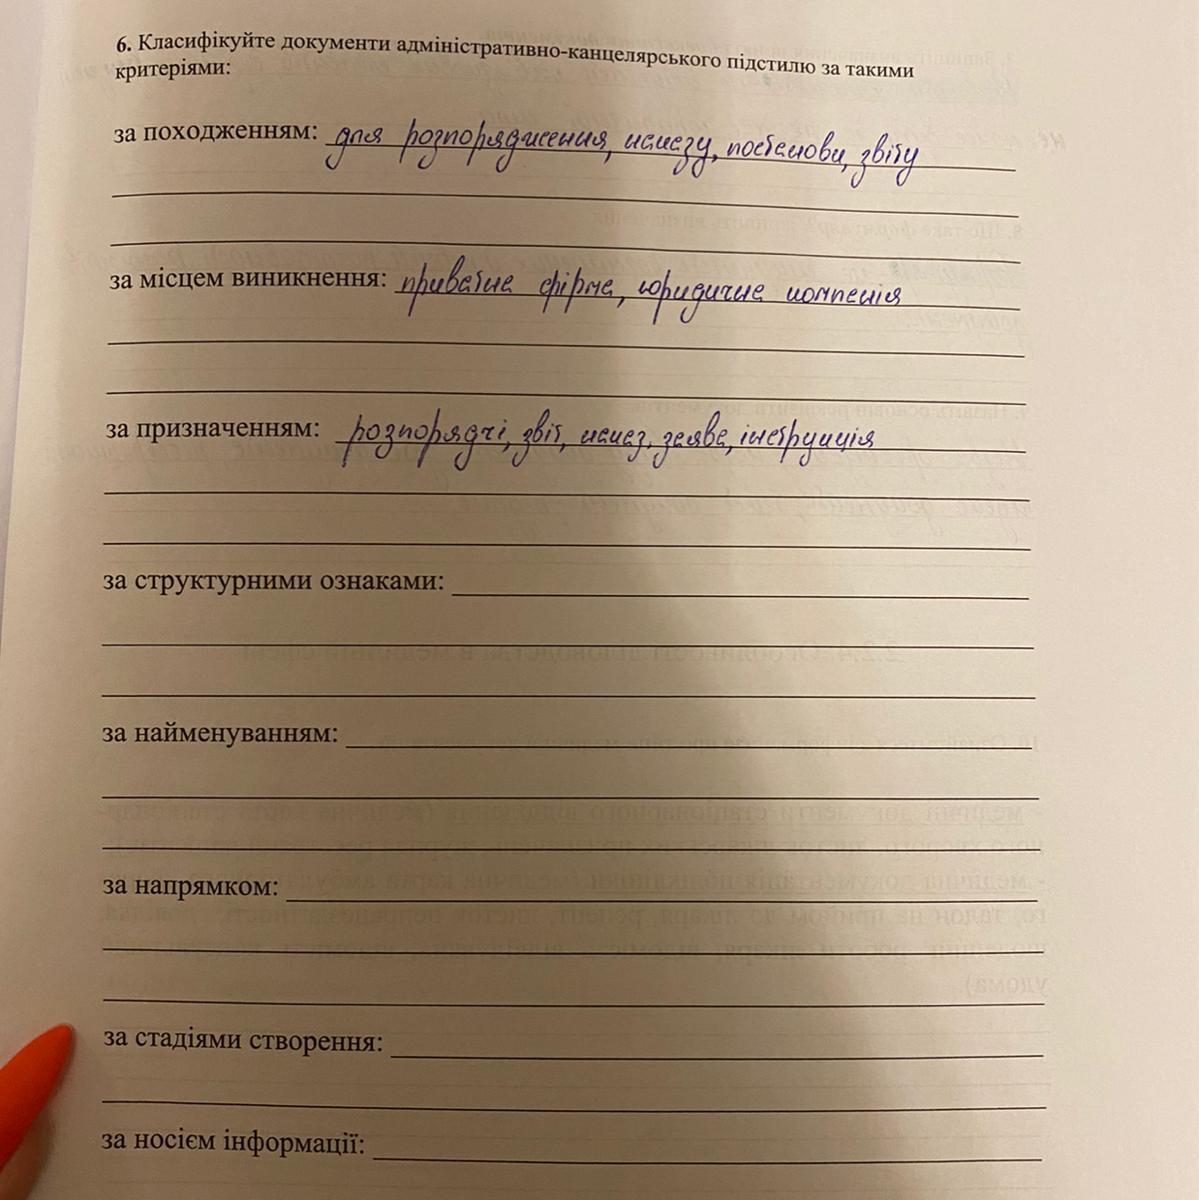 6. Класифікуйте документи адміністративно-канцелярського підстилю за такими
критеріями:
за походженням: для розпорядження, наказу, постанови, звіту
за місцем виникнення: приватна фірма, юридична компанія
за призначенням: розпорядчі, звіт, наказ, заява, інструкція
за структурними ознаками:
за найменуванням:
за напрямком:
за стадіями створення:
за носієм інформації: